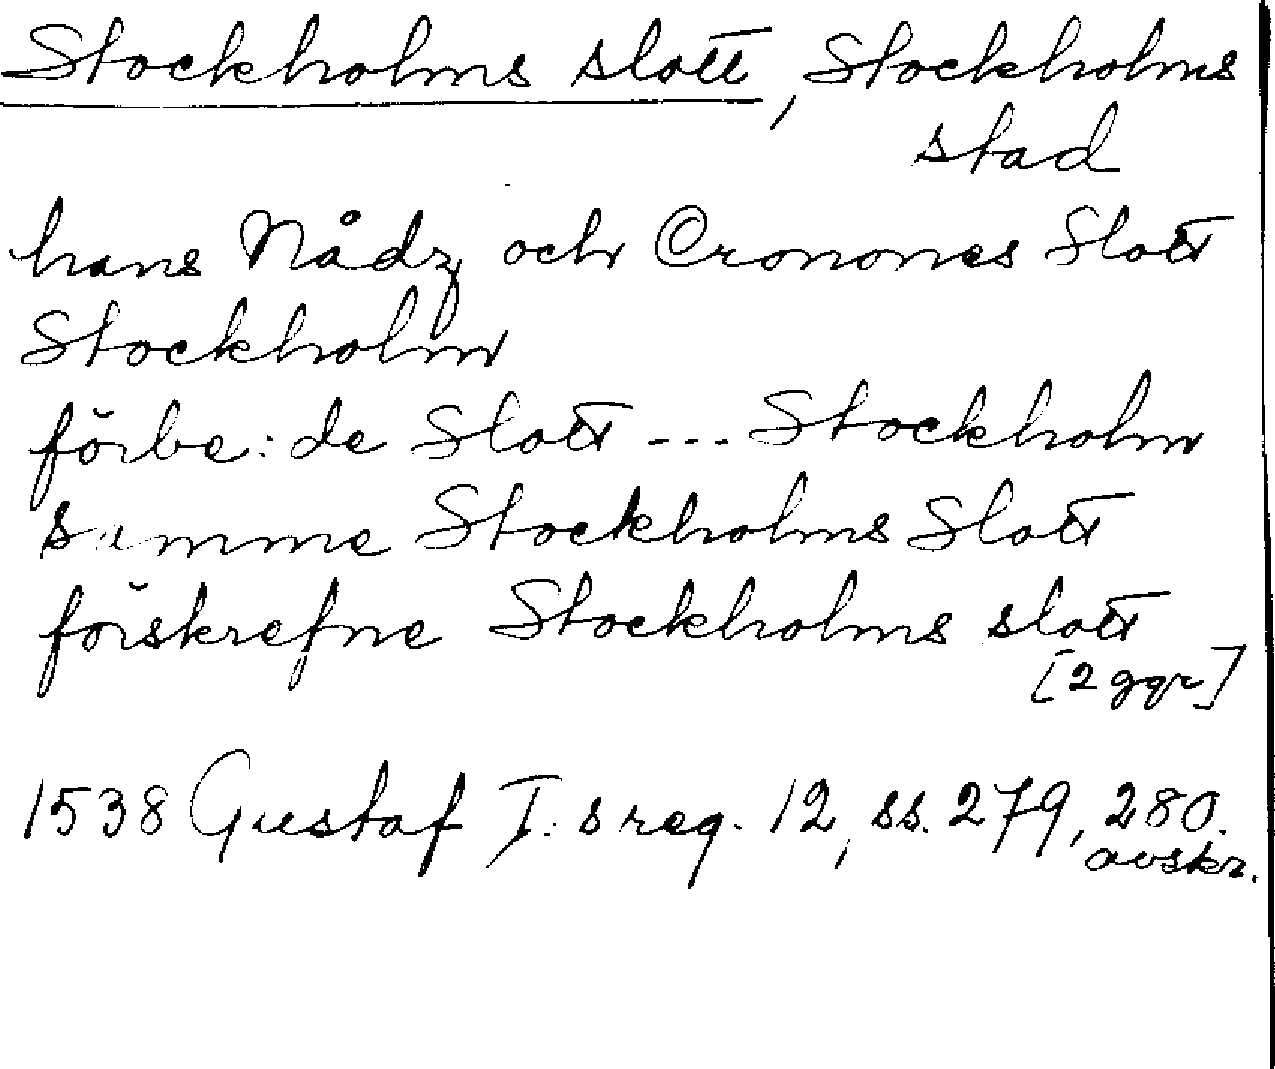 Stockholms slott, Stockholms
stad
hans Nådz och Cronones Slott
Stockholm
förbe: de Slott --- Stockholm
samme Stockholms Slott
förskrefne Stockholms slott
[2 ggr]
1538 Gustaf I: s reg. 12, ss. 279, 280.
avskr.